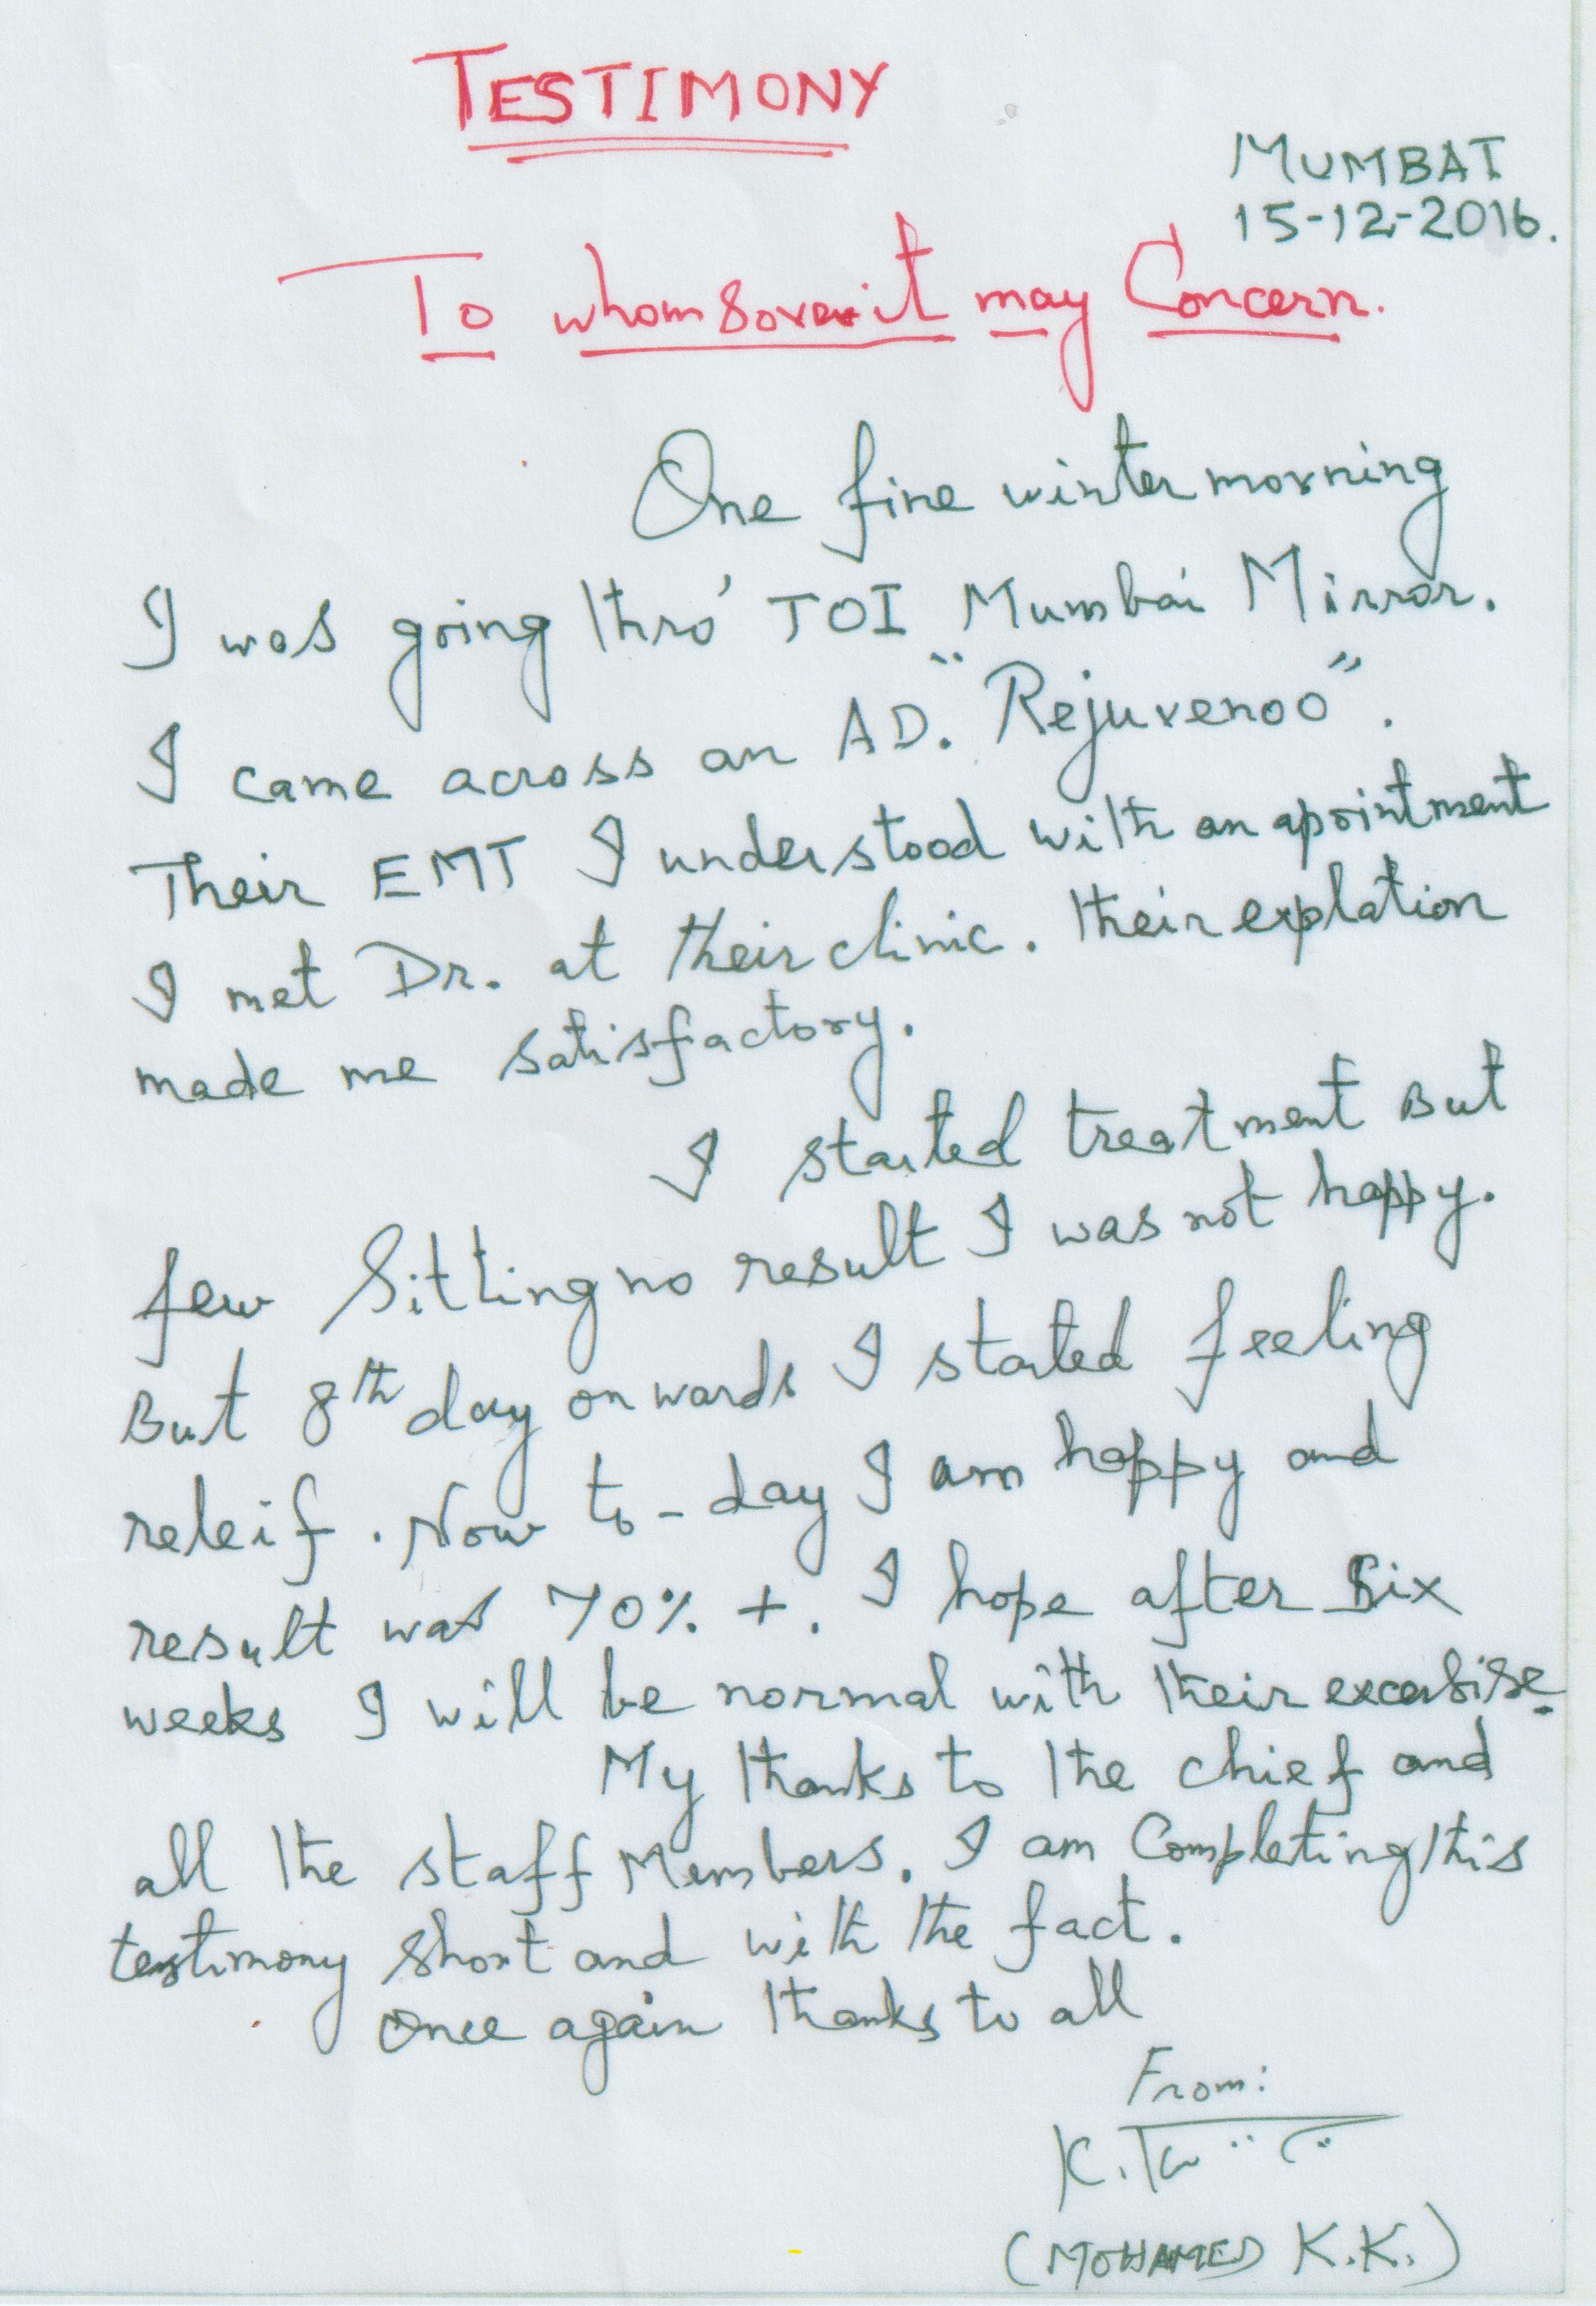 TESTIMONY
MUMBAI
15-12-2016.
To whomsoever it may Concern.
One fine winter morning
I was going thro' TOI Mumbai Mirror.
I came across an AD. "Rejuvenoo".
Their EMT I understood with an apointment
I met Dr. at their clinic. their explation
made me satisfactory.
I started treatment But
few Sitting no result I was not happy.
But 8th day onwards I started feeling
releif. Now to-day I am happy and
result was 70% +. I hope after Six
weeks I will be normal with their excersise.
My thanks to the chief and
all the staff Members. I am Completing this
testimony short and with the fact.
Once again thanks to all
From:
(MOHAMED K.K.)